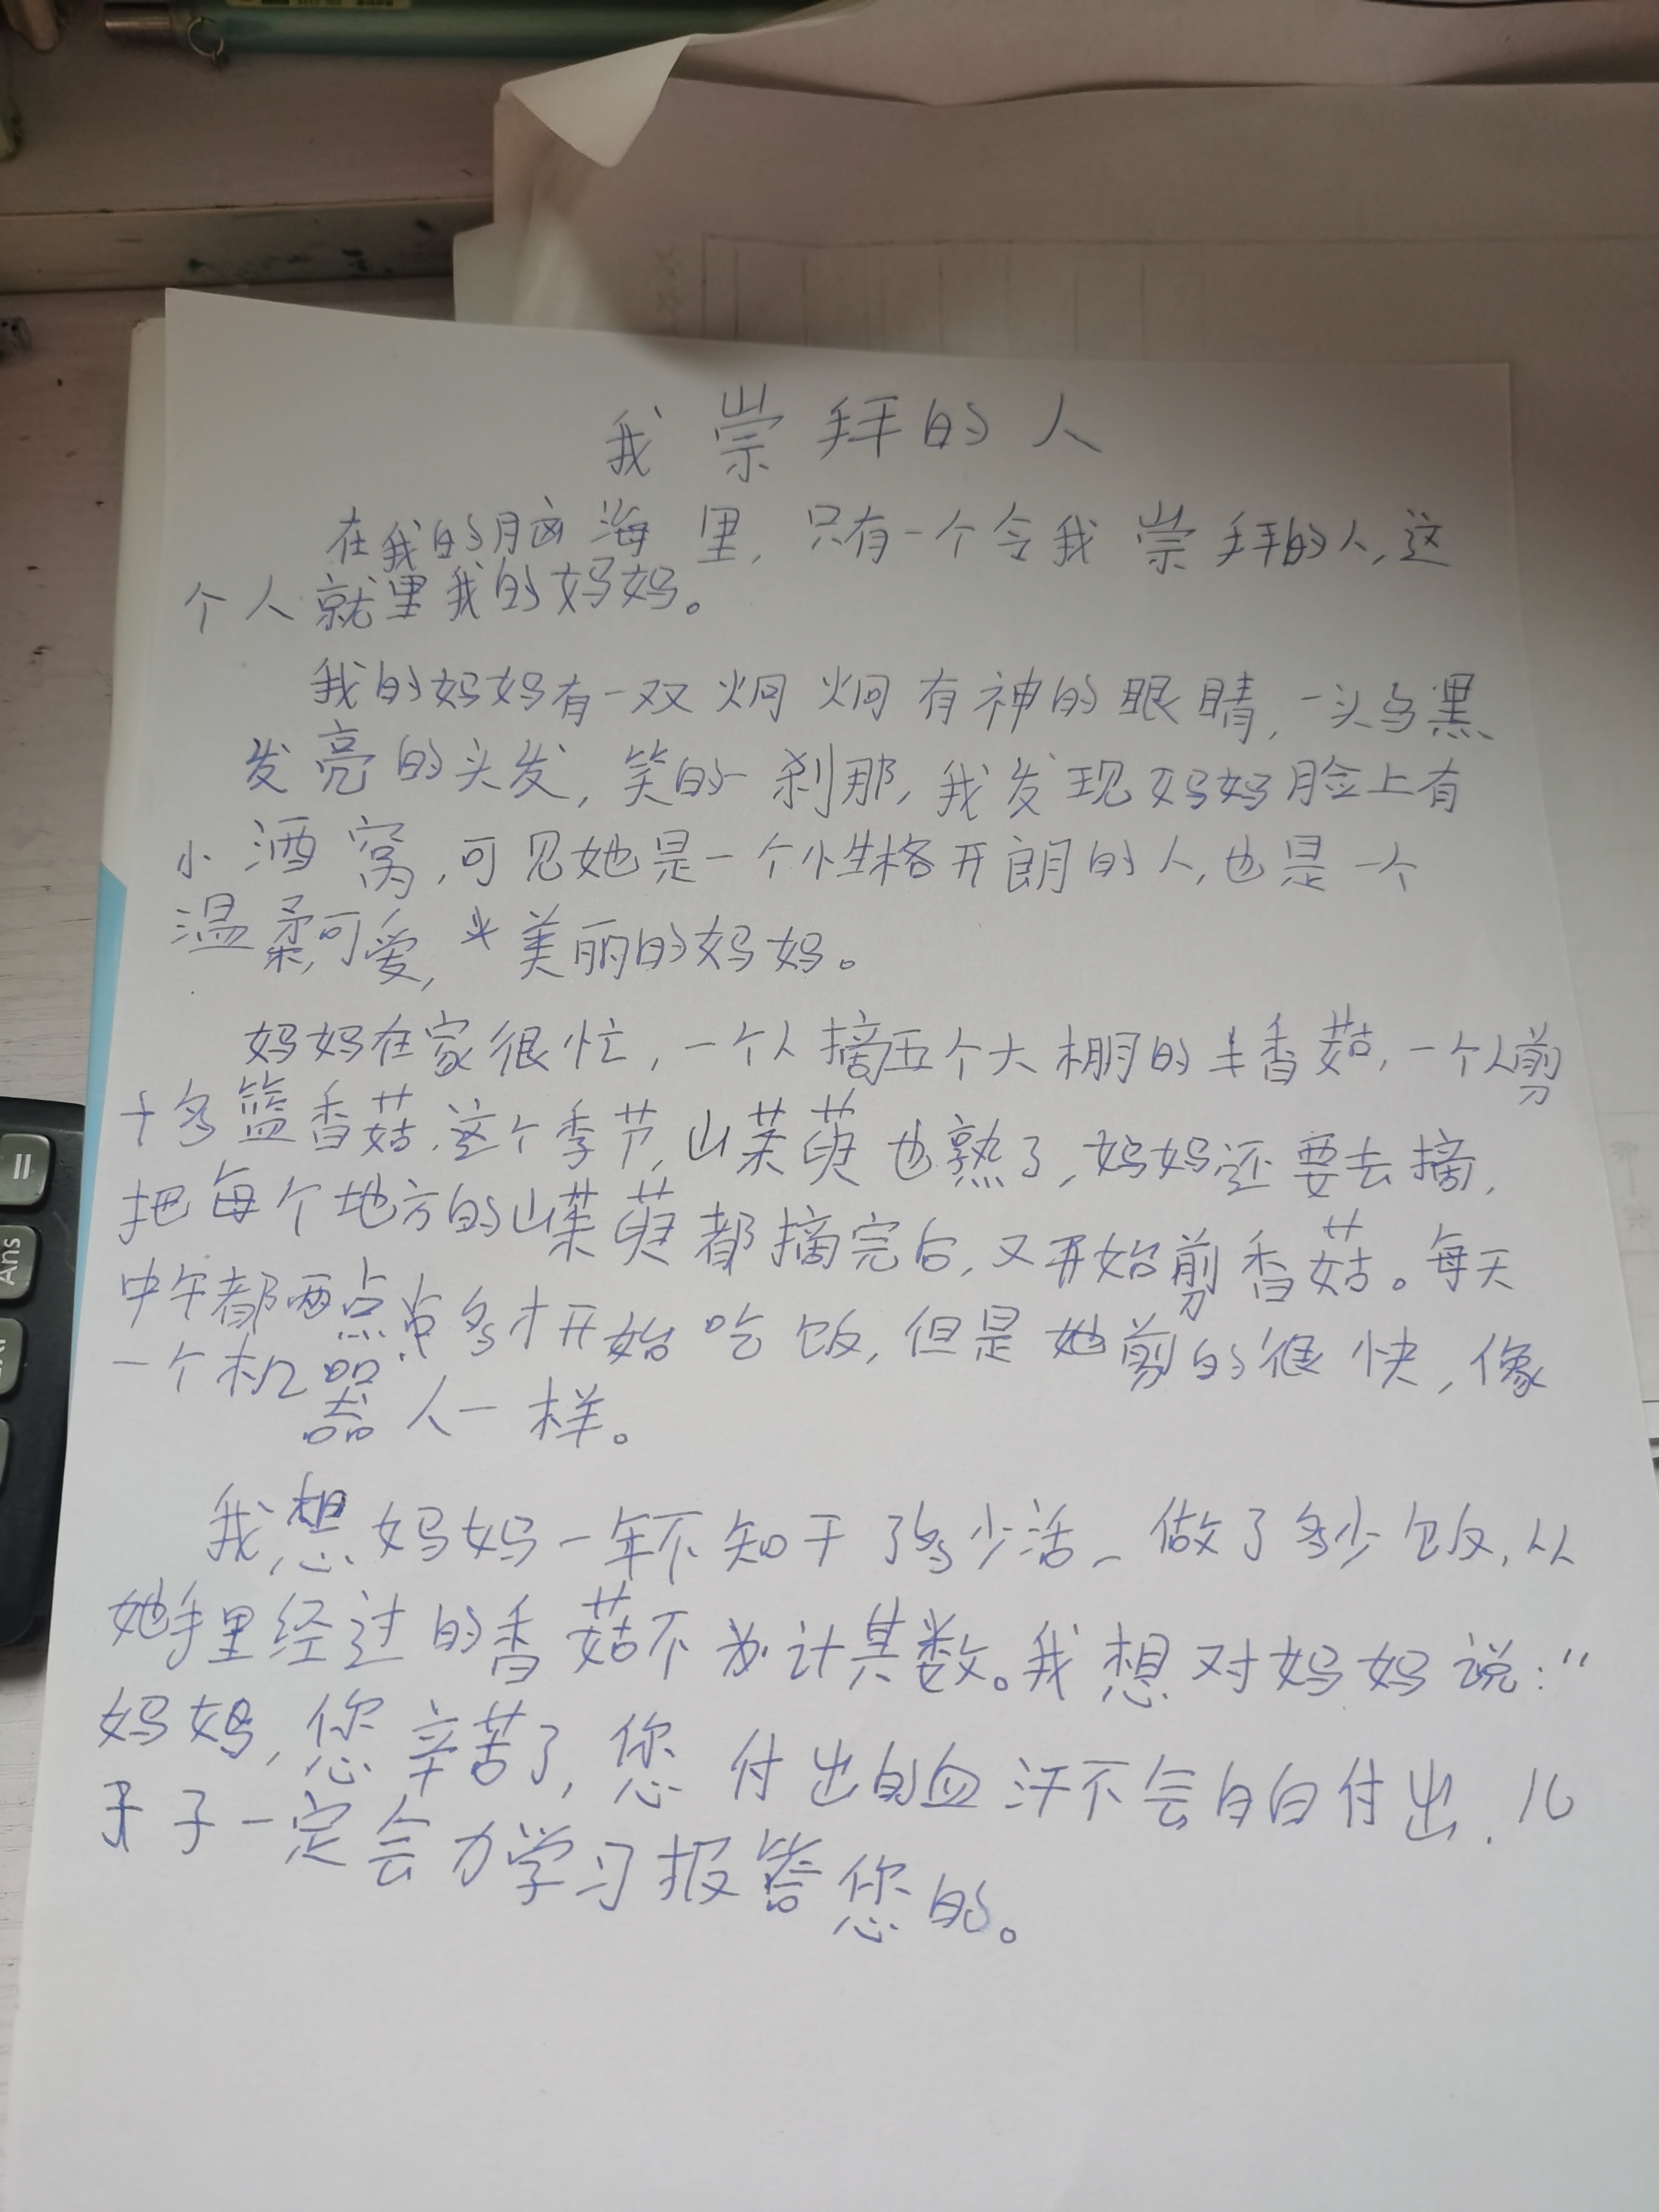 我崇拜的人
在我的脑海里,只有一个令我崇拜的人,这
个人就里我的妈妈。
我的妈妈有一双炯炯有神的眼睛,一头乌黑
发亮的头发,笑的一刹那,我发现妈妈脸上有
小酒窝,可见她是一个性格开朗的人,也是一个
温柔,可爱,美丽的妈妈。
妈妈在家很忙,一个人摘五个大棚的香菇,一个人剪
十多篮香菇.这个季节,山茱萸也熟了,妈妈还要去摘,
把每个地方的山茱萸都摘完后,又开始剪香菇。每天
中午都两点多才开始吃饭,但是她剪的很快,像
一个机器人一样。
我想妈妈一年不知干了多少活、做了多少饭,从
她手里经过的香菇不计其数。我想对妈妈说:“
妈妈,您辛苦了,您付出的血汗不会白白付出.儿
子一定会力学习报答您的。
II
Ans